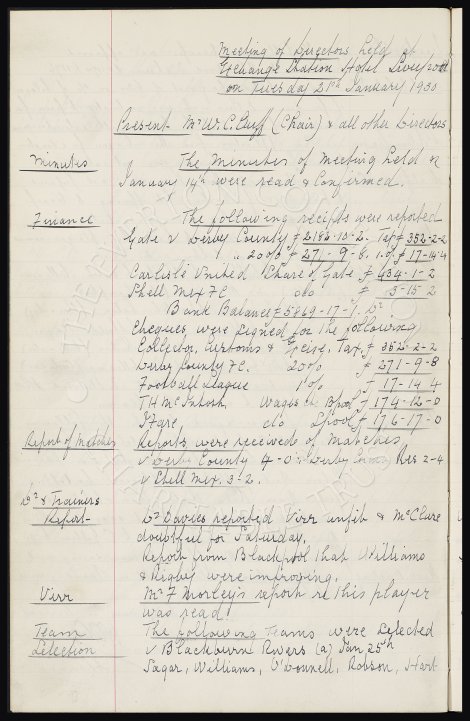 Meeting of Directors held at
Exchange Station Hotel Liverpool
on Tuesday 21st January 1930
Present Mr W.C. Cuff (Chair) & all other Directors
Minutes The Minutes of Meeting held on
January 14th were read & Confirmed.
Finance The following receipts were reported
Gate v Derby County £2182-10-2. Tax £352-2-2
" 20% £271-9-8. 1% £17-14-4
Carlisle United Share of Gate £434-1-2
Shell Mex FC do £ 3-15-2
Bank Balance £5869-17-1. Dr
Cheques were signed for the following
Collector, Customs & Excise. Tax. £352-2-2
Derby County FC. 20% £271-9-8
Football League 1% £17-14-4
TH McIntosh Wages &c Bpool £174-12-0
Fare, do Lpool £176-17-0
Report of Matches Reports were received of matches,
v Derby County 4-0 v Derby County Res 2-4
v Shell Mex. 3-2.
Dr & Trainers
Report Dr Davies reported Virr unfit & McClure
doubtful for Saturday.
Report from Blackpool that Williams
& Rigby were improving.
Virr Mr F Morley's report re this player
was read.
Team
Selection The following Teams were selected
v Blackburn Rovers (a) Jan 25th
Sagar, Williams, O'Donnell, Robson, Hart